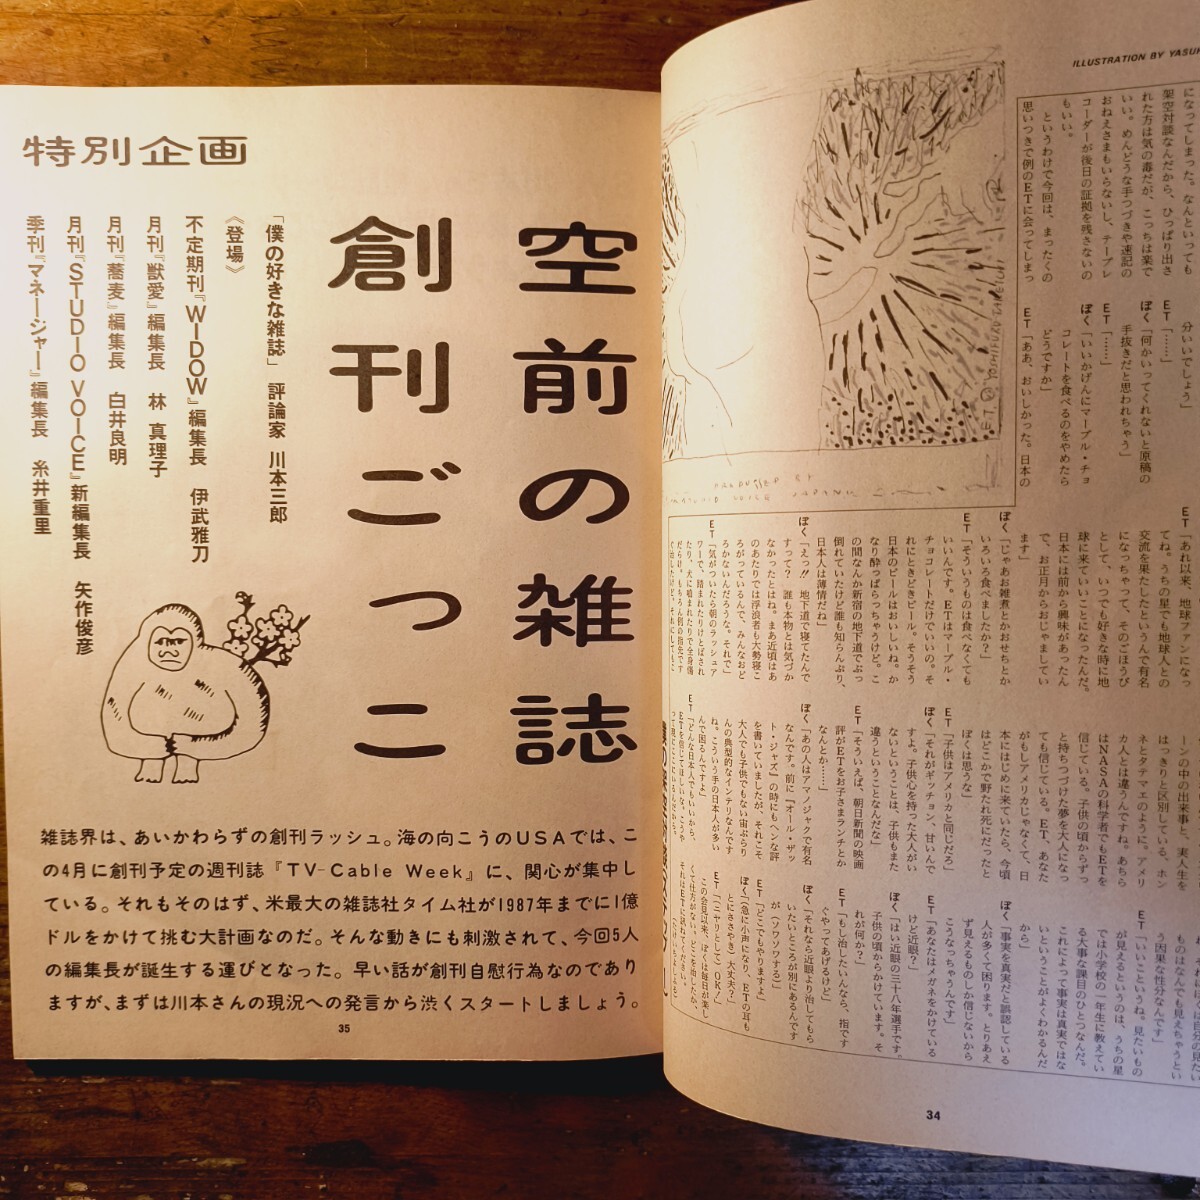 ILLUSTRATION BY
になってしまった。なんといっても
架空対談なんだから、ひっぱり出さ
れた方は気の毒だが、こっちは楽で
いい。めんどうな手つづきや速記の
おねえさまもいらないし、テープレ
コーダーが後日の証拠を残さないの
もいい。
というわけで今回は、まったくの
思いつきで例のETに会ってしまっ
分いいでしょう」
ET「……」
ぼく「何かいってくれないと原稿の
手抜きだと思われちゃう」
ET「……」
ぼく「いいかげんにマーブル・チョ
コレートを食べるのをやめたら
どうですか」
ET「ああ、おいしかった。日本の
ET「あれ以来、地球ファンになっ
てね。うちの星でも地球人との
交流を果たしたというんで有名
になっちゃって、そのごほうび
として、いつでも好きな時に地
球に来ていいことになったんだ。
日本には前から興味があったん
で、お正月からおじゃましてい
ます」
ぼく「じゃあお雑煮とかおせちとか
いろいろ食べましたか？」
ET「そういうものは食べなくても
いいんです。ETはマーブル・
チョコレートだけでいいの。そ
れにときどきビール。そうそう
日本のビールはおいしいね。か
なり酔っぱらっちゃうけど。こ
の間なんか新宿の地下道でぶっ
倒れていたけど誰も知らんぷり、
日本人は薄情だね」
ぼく「えっ!!　地下道で寝てたんで
すって？　誰も本物とは気づか
なかったとはね。まあ近頃はあ
のあたりでは浮浪者も大勢寝こ
ろがっているんで、みんなおど
ろかないんだろうな。それで」
ET「気がついたら朝のラッシュア
ワーで、踏まれたりけとばされ
たり、犬に噛まれたりで全身傷
だらけ。もちろん例の指先です
ーンの中の出来事と、実人生を
はっきりと区別している。ホン
ネとタテマエのように。アメリ
カ人とは違うんですね。あちら
はNASAの科学者でもETを
信じている。子供の頃からずっ
と持ちつづけた夢を大人になっ
ても信じている。ET、あなた
がもしアメリカじゃなくて、日
本にはじめに来ていたら、今頃
はどこかで野たれ死にだったと
ぼくは思うな」
ET「子供はアメリカと同じだろ」
ぼく「それがギッチョン、甘いんで
すよ。子供心を持った大人がい
ないということは、子供もまた
違うということなんだな」
ET「そういえば、朝日新聞の映画
評がETをお子さまランチとか
なんとか……」
ぼく「あの人はアマノジャクで有名
なんです。前に『オール・ザッ
ト・ジャズ』の時にもヘンな評
を書いていましたが、それこそ
大人でも子供でもない宙ぶらり
んの典型的なインテリなんです
ね。こういう手の日本人が多い
んで困るんですよ」
ET「どんな日本人でもいいから、
ETを信じてほしいな。
ものはなんでも見えちゃうとい
う因果な性分なんです」
ET「いいこというね。見たいもの
が見えるというのは、うちの星
では小学校の一年生に教えてい
る大事な課目のひとつなんだ。
これによって事実は真実ではな
いということがよくわかるんだ
から」
ぼく「事実を真実だと誤認している
人が多くて困ります。とりあえ
ず見えるものしか信じないから
こうなっちゃうんです」
ET「あなたはメガネをかけている
けど近眼？」
ぼく「はい近眼の三十八年選手です。
子供の頃からかけています。そ
れが何か？」
ET「もし治したいんなら、指です
ぐやってあげるけど」
ぼく「それなら近眼より治してもら
いたいところが別にあるんです
が（ソワソワする）」
ET「どこでもやりますよ」
ぼく「（急に小声になり、ETの耳も
とにささやき）大丈夫？」
ET「（ニヤリとして）OK！」
この会見以来、ぼくは毎日が楽し
くて仕方がない。どこを治したか、
それはETに訊ねてください。
34
特別企画
空前の雑誌
創刊ごっこ
「僕の好きな雑誌」　評論家　川本三郎
《登場》
不定期刊『WIDOW』編集長　伊武雅刀
月刊『獣愛』編集長　林　真理子
月刊『蕎麦』編集長　白井良明
月刊『STUDIO VOICE』新編集長　矢作俊彦
季刊『マネージャー』編集長　糸井重里
雑誌界は、あいかわらずの創刊ラッシュ。海の向こうのUSAでは、こ
の4月に創刊予定の週刊誌『TV-Cable Week』に、関心が集中し
ている。それもそのはず、米最大の雑誌社タイム社が1987年までに1億
ドルをかけて挑む大計画なのだ。そんな動きにも刺激されて、今回5人
の編集長が誕生する運びとなった。早い話が創刊自慰行為なのであり
ますが、まずは川本さんの現況への発言から渋くスタートしましょう。
35